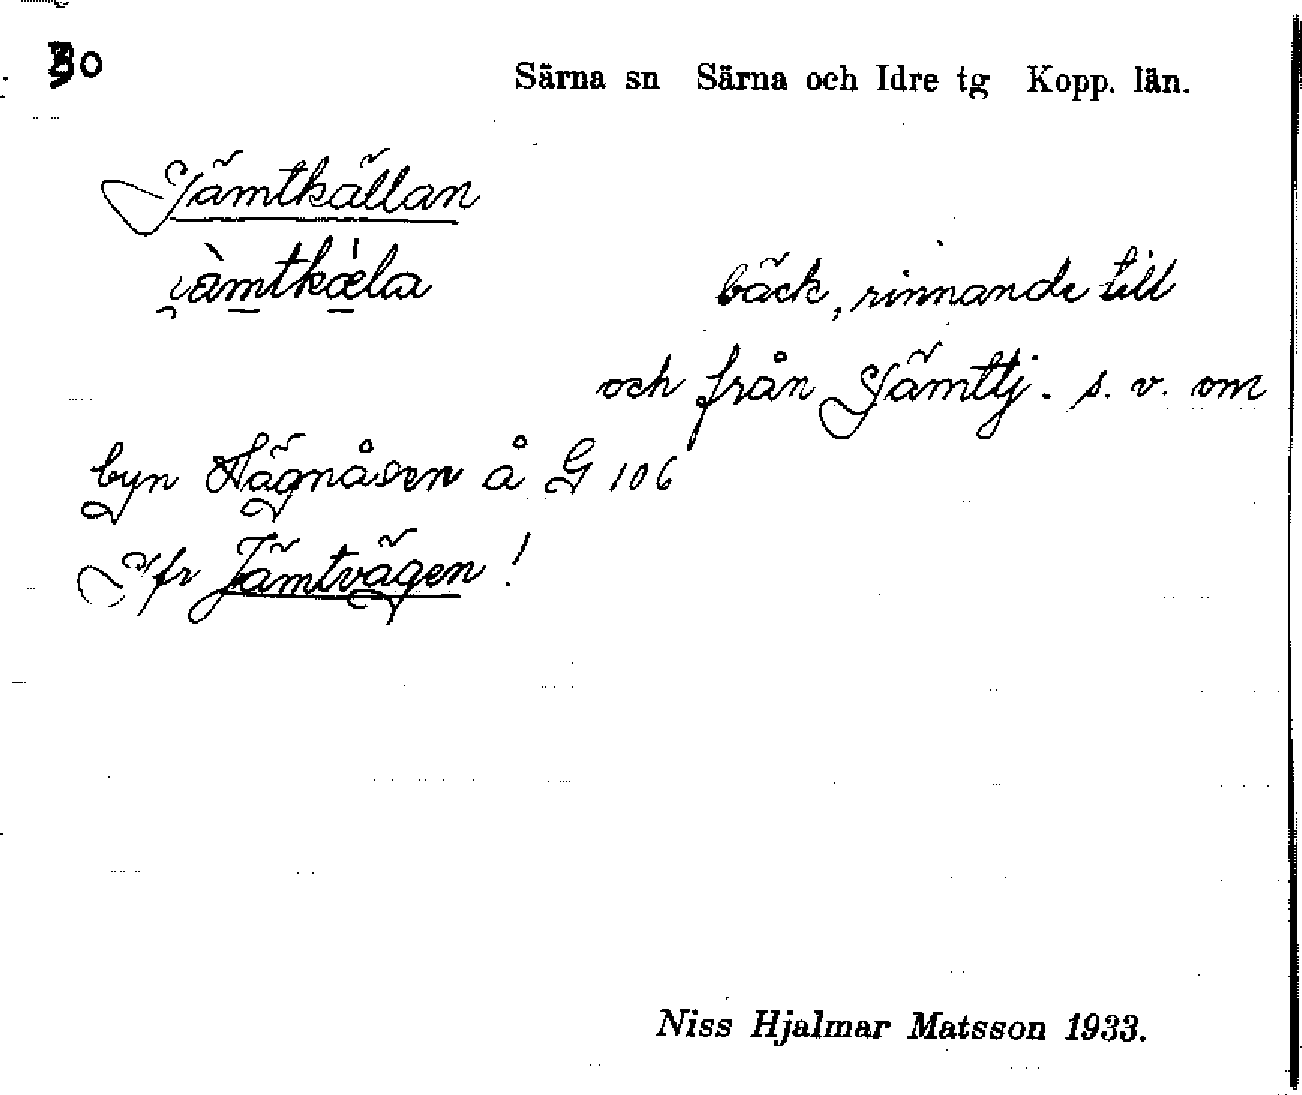 30
Särna sn Särna och Idre tg Kopp. län.
Jämtkällan
i̯àmtkæ̀la
bäck, rinnande till
och från Jämttj. s. v. om
byn Hägnåsen å G 106
Jfr Jämtvägen!
Niss Hjalmar Matsson 1933.